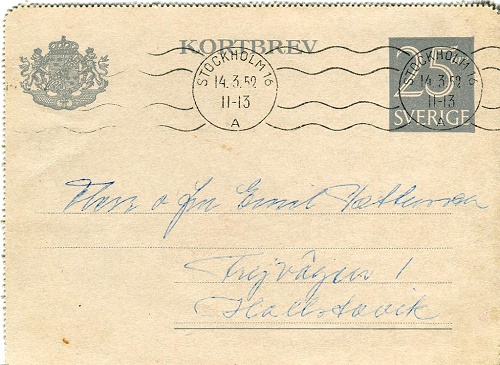 KORTBREV
STOCKHOLM 16
14.3.52
11-13
A
25
SVERIGE
STOCKHOLM 16
14.3.52
11-13
A
Herr o fru Emil
Frejvägen 1
Hallstavik